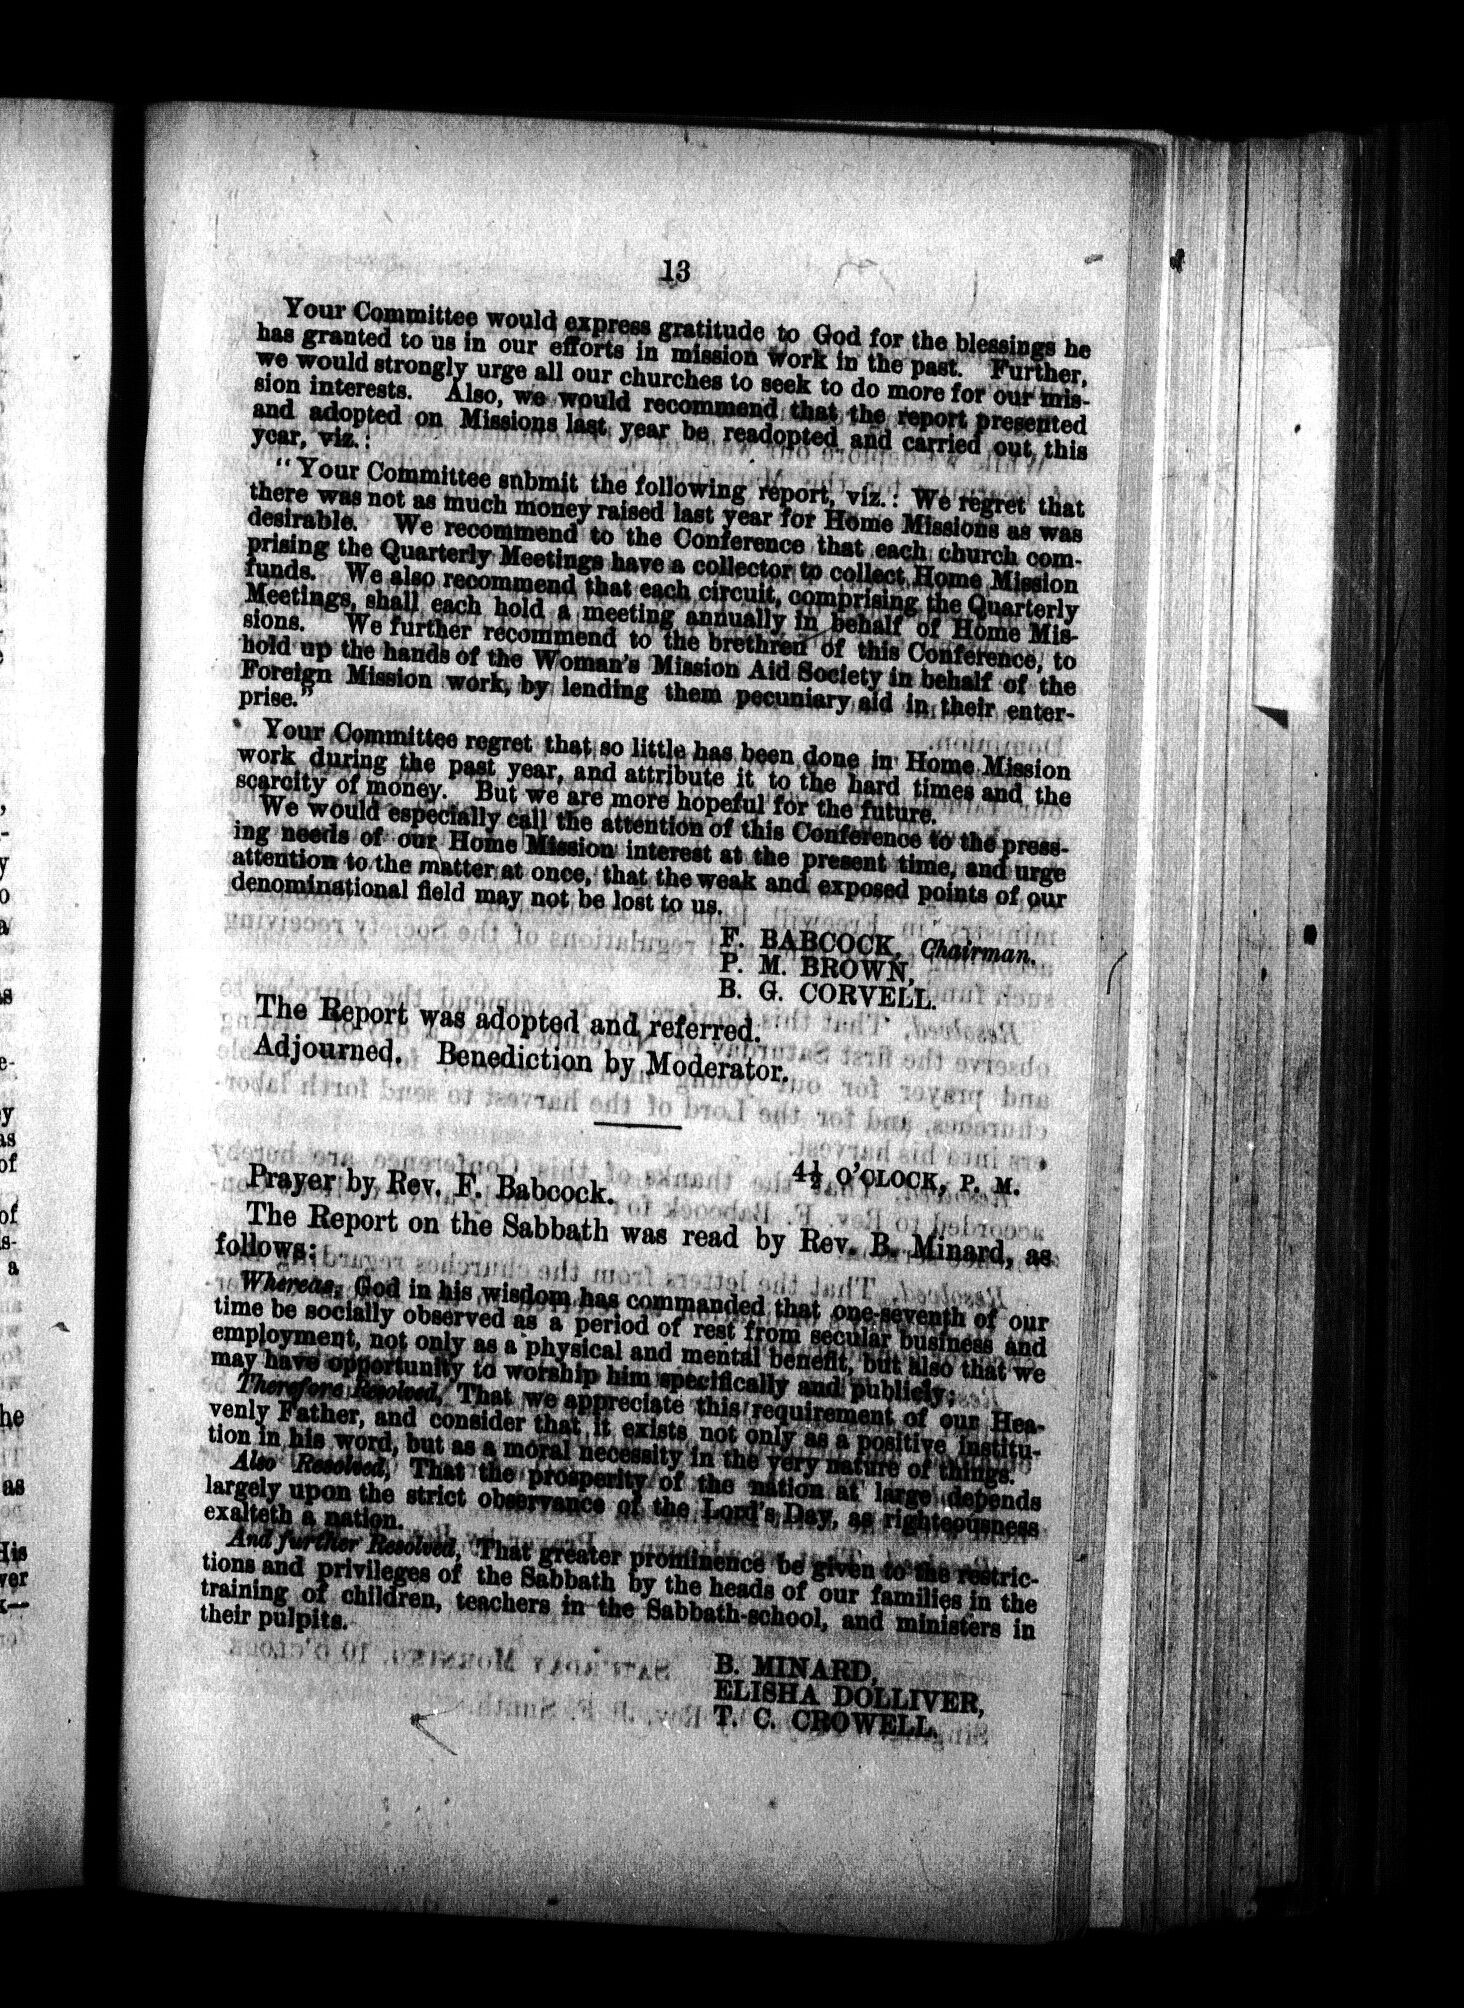 13
Your Committee would express gratitude to God for the blessings he
has granted to us in our efforts in mission work in the past. Further,
we would strongly urge all our churches to seek to do more for our mis-
sion interests. Also, we would recommend that the report presented
and adopted on Missions last year be readopted and carried out this
year, viz.:
"Your Committee snbmit the following report, viz.: We regret that
there was not as much money raised last year for Home Missions as was
desirable. We recommend to the Conference that each church com-
prising the Quarterly Meetings have a collector to collect Home Mission
funds. We also recommend that each circuit, comprising the Quarterly
Meetings, shall each hold a meeting annually in behalf of Home Mis-
sions. We further recommend to the brethren of this Conference, to
hold up the hands of the Woman's Mission Aid Society in behalf of the
Foreign Mission work, by lending them pecuniary aid in their enter-
prise."
Your Committee regret that so little has been done in Home Mission
work during the past year, and attribute it to the hard times and the
scarcity of money. But we are more hopeful for the future.
We would especially call the attention of this Conference to the press-
ing needs of our Home Mission interest at the present time, and urge
attention to the matter at once, that the weak and exposed points of our
denominational field may not be lost to us.
F. BABCOCK, Chairman.
P. M. BROWN,
B. G. CORVELL.
The Report was adopted and referred.
Adjourned. Benediction by Moderator.
4½ O'CLOCK, P. M.
Prayer by Rev. F. Babcock.
The Report on the Sabbath was read by Rev. B. Minard, as
follows:
Whereas, God in his wisdom has commanded that one-seventh of our
time be socially observed as a period of rest from secular business and
employment, not only as a physical and mental benefit, but also that we
may have opportunity to worship him specifically and publicly;
Therefore Resolved, That we appreciate this requirement of our Hea-
venly Father, and consider that it exists not only as a positive institu-
tion in his word, but as a moral necessity in the very nature of things.
Also Resolved, That the prosperity of the nation at large depends
largely upon the strict observance of the Lord's Day, as righteousness
exalteth a nation.
And further Resolved, That greater prominence be given to the restric-
tions and privileges of the Sabbath by the heads of our families in the
training of children, teachers in the Sabbath-school, and ministers in
their pulpits.
B. MINARD,
ELISHA DOLLIVER,
T. C. CROWELL.